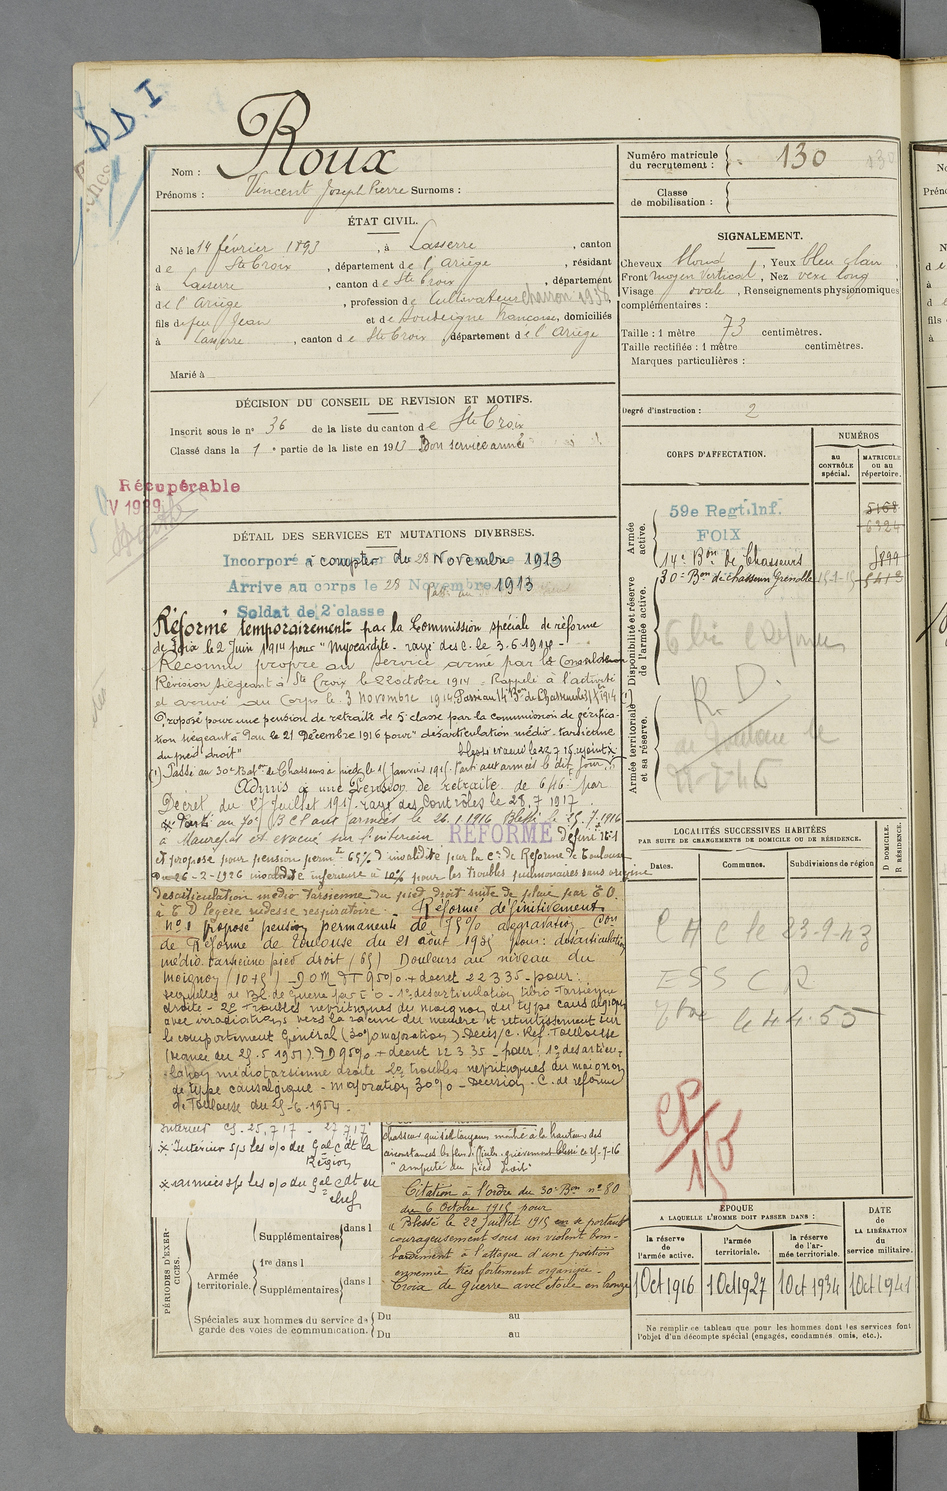 D D. I
Roux
Nom :
Prénoms : Vincent Joseph Pierre Surnoms :
Numéro matricule du recrutement : 130
Classe de mobilisation :
ÉTAT CIVIL.
Né le 14 février 1893, à Lasserre, canton
de Ste Croix, département de l'Ariège, résidant
à Lasserre, canton de Ste Croix, département
de l'Ariège, profession de Cultivateur
fils de feu Jean et de Françoise, domiciliés
à Lasserre, canton de Ste Croix, département de l'Ariège
Marié à
SIGNALEMENT.
Cheveux blond, Yeux bleu clair
Front moyen vertical, Nez vexe long,
Visage ovale, Renseignements physionomiques
complémentaires :
Taille : 1 mètre 73 centimètres.
Taille rectifiée : 1 mètre centimètres.
Marques particulières :
Degré d'instruction : 2
DÉCISION DU CONSEIL DE REVISION ET MOTIFS.
Inscrit sous le n° 36 de la liste du canton de Ste Croix
Classé dans la 1e partie de la liste en 1913 Bon service armé
Récupérable
DÉTAIL DES SERVICES ET MUTATIONS DIVERSES.
Incorporé à compter du 28 Novembre 1913
Arrive au corps le 28 Novembre 1913
Soldat de 2e classe
Réformé temporairement par la Commission spéciale de réforme
de Foix le 2 Juin 1914 pour "Myocardite - rayé des c. le 3.6.1914 -
Reconnu propre au service armé par le Conseil de
Révision siégeant à Ste Croix le 22 octobre 1914. Rappelé à l'activité
et arrivé au Corps le 3 novembre 1914. Passé au 14e Bon de Chasseurs
Proposé pour une pension de retraite de 5e classe par la commission de vérifica-
tion siégeant à Pau le 21 Décembre 1916 pour "désarticulation médio-tarsienne
du pied droit"
(1) Passé au 30e Baton de Chasseurs à pied le 15 Janvier 1915. Parti aux armées le dit jour.
Admis à une Pension de retraite de 646 par
Décret du 27 Juillet 1917 - rayé des contrôles le 28.7.1917.
Parti au 70e B C P aux armées le 26.1.1916 Blessé le 15.7.1916
à Maurepas et évacué sur l'intérieur
RÉFORMÉ
Définitif n° 1
et proposé pour pension permte 65% d'invalidité par la Con de Réforme de Toulouse
du 26-2-1926 invalidité inférieure à 10% pour les troubles pulmonaires sans origine
desarticulation médio tarsienne du pied droit suite de plaie par E.O.
légère rudesse respiratoire. Réformé définitivement
n° 1 proposé pension permanente de 95% aggravation, Con
de Réforme de Toulouse du 21 août 1935 pour : désarticulation
médio-tarsienne pied droit (65) Douleurs au niveau du
moignon (10+5) D D M D 95% + décret 22 3 35 - pour :
sequelles de Bl. de guerre par E O - 1° desarticulation tibio tarsienne
droite - 2° Troubles nevritiques du moignon du type causalgique
avec irradiations vers la racine du membre et retentissement sur
le comportement Général (30% majoration) Décis/C. Ref. Toulouse
(séance du 29.5.1951). D D 95% + decret 22 3 35 - pour : 1° desarticu-
lation médio tarsienne droite 2° troubles nevritiques du moignon
de type causalgique - majoration 30% - Décision - C. de réforme
de Toulouse du 25-6-1954 -
Interieur CS. 25.7.17 - 27.7.17
x Intérieur S/S les o/o du Gal C dt la
Région
x armées s/s les o/o du Gal C dt en
chef
Chasseur qui s'est toujours montré à la hauteur des
circonstances les plus difficiles - grièvement blessé le 15-7-16
"amputé du pied droit"
Citation à l'ordre du 30e Bon n° 80
du 6 Octobre 1915 pour
"Blessé le 22 Juillet 1915 en se portant
courageusement sous un violent bom-
bardement à l'attaque d'une position
ennemie très fortement organisée.
Croix de guerre avec étoile en bronze
PÉRIODES D'EXERCICES.
Supplémentaires dans l
Armée territoriale.
1re dans l
Supplémentaires dans l
Spéciales aux hommes du service de garde des voies de communication.
Du au
Du au
CORPS D'AFFECTATION.
NUMÉROS
au CONTRÔLE spécial.
MATRICULE ou au répertoire.
Armée active.
59e Regt. Inf.
FOIX
5168
6324
14e Bon de Chasseurs
5899
30e Bon de chasseurs Grenoble 15-1-15 5413
Disponibilité et réserve de l'armée active.
R. D.
Armée territoriale et sa réserve.
LOCALITÉS SUCCESSIVES HABITÉES
PAR SUITE DE CHANGEMENTS DE DOMICILE OU DE RÉSIDENCE.
Dates.
Communes.
Subdivisions de région
D DOMICILE.
R RÉSIDENCE.
C H C le 23-9-43
E S S C R
le 4.4.55
ÉPOQUE
A LAQUELLE L'HOMME DOIT PASSER DANS :
la réserve de l'armée active.
l'armée territoriale.
la réserve de l'armée territoriale.
DATE de LA LIBÉRATION du service militaire.
1 Oct 1916
1 Oct 1927
1 Oct 1934
1 Oct 1941
Ne remplir ce tableau que pour les hommes dont les services font
l'objet d'un décompte spécial (engagés, condamnés omis, etc.).